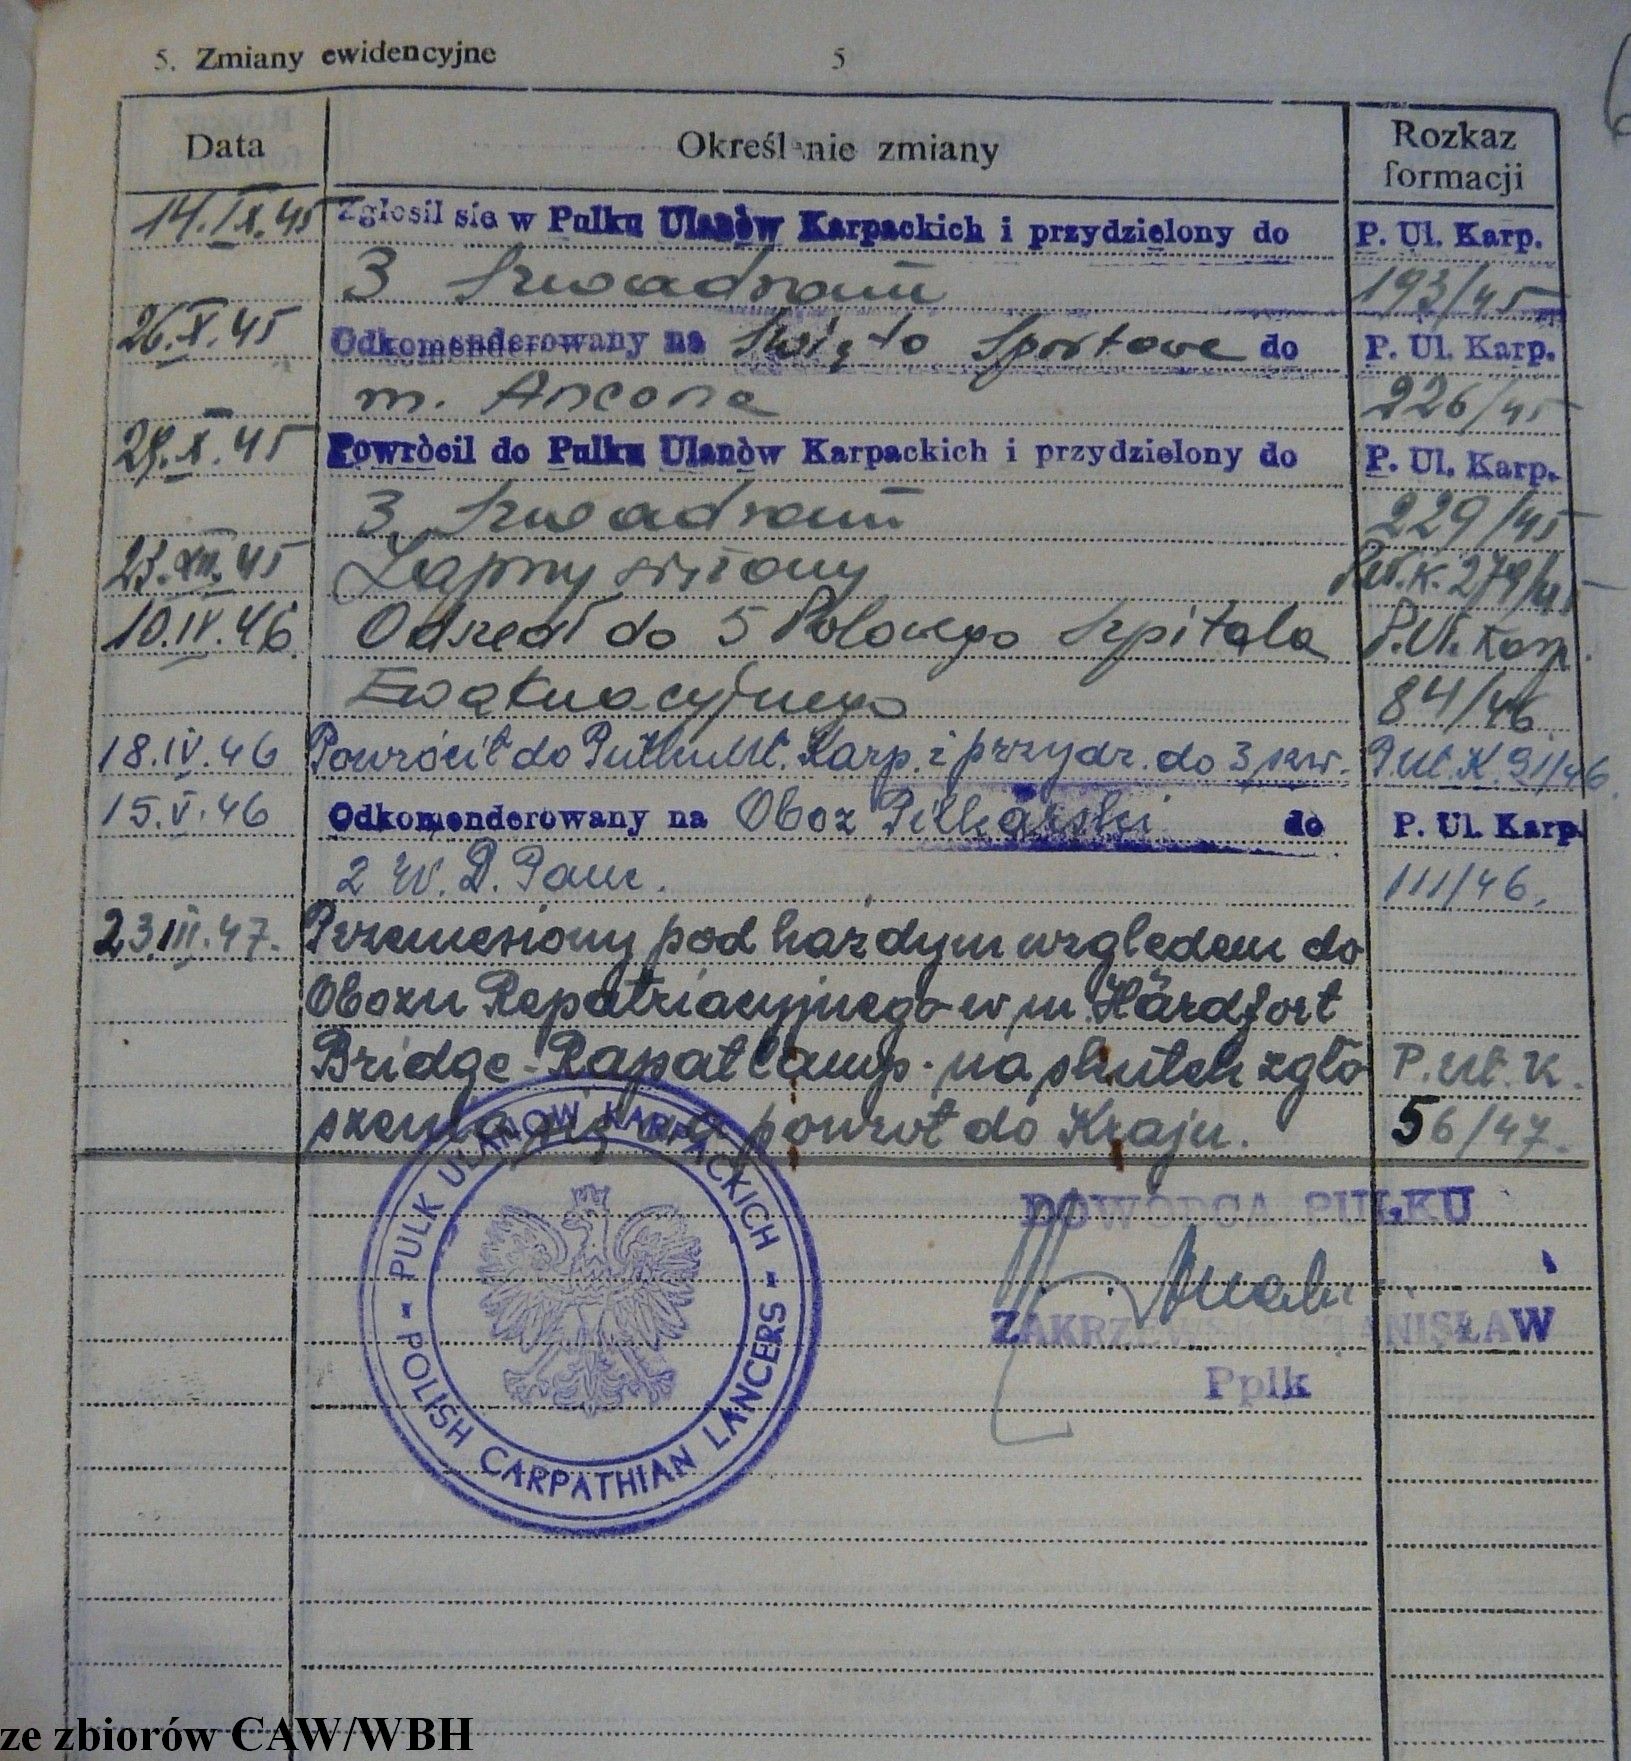 5. Zmiany ewidencyjne 5
Data Określanie zmiany Rozkaz formacji
14.IX.45 Zgłosil sie w Pulku Ulanòw Karpackich i przydzielony do P. Ul. Karp.
3 Szwadronu 193/45
26.X.45 Odkomenderowany na Święto Sportowe do P. Ul. Karp.
m. Ancona 226/45
29.X.45 Powròcil do Pulku Ulanòw Karpackich i przydzielony do P. Ul. Karp.
3 Szwadronu 229/45
23.XII.45 Zaprzysiężony P.Uł.K. 279/45
10.IV.46. Odszedł do 5 Polowego Szpitala P.Uł. Karp.
Ewakuacyjnego 84/46.
18.IV.46 Powrócił do Pułku Uł. Karp. i przydz. do 3 szw. P.Uł.K. 91/46.
15.V.46 Odkomenderowany na Obóz Piłkarski do P. Ul. Karp.
2 W. D. Panc. 111/46.
23.III.47. Przeniesiony pod każdym względem do
Obozu Repatriacyjnego w m. Hardfort
Bridge-Rapat Camp. na skutek zgło P.Uł.K.
szenia się na powrót do Kraju. 56/47.
PULK ULANOW KARPACKICH
POLISH CARPATHIAN LANCERS
DOWÓDCA PUŁKU
ZAKRZEWSKI STANISŁAW
Pplk
ze zbiorów CAW/WBH